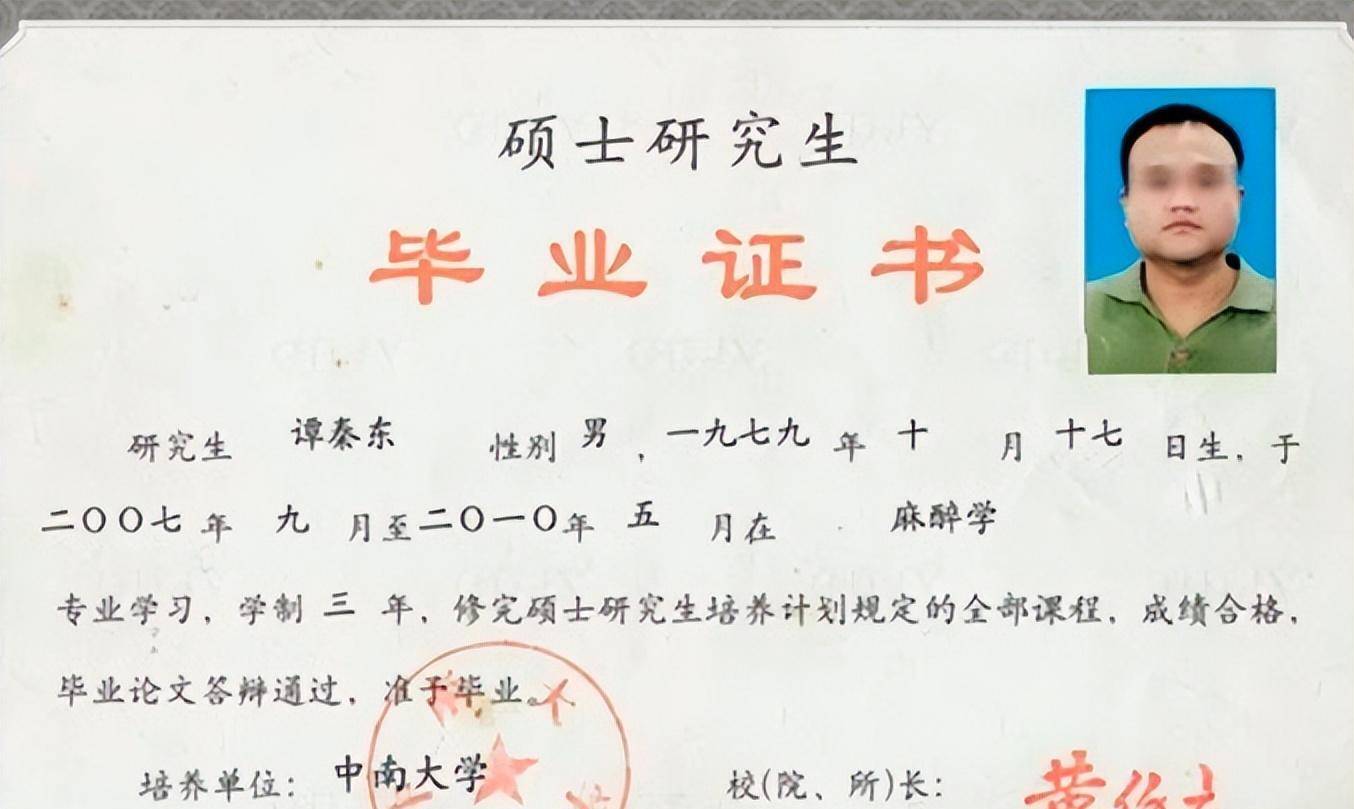 硕士研究生
毕业证书
研究生 谭秦东 性别 男 , 一九七九 年 十 月 十七 日生, 于
二〇〇七 年 九 月至 二〇一〇 年 五 月在 麻醉学
专业学习, 学制 三 年, 修完硕士研究生培养计划规定的全部课程, 成绩合格,
毕业论文答辩通过, 准予毕业。
培养单位: 中南大学 校(院、所)长: 黄伯